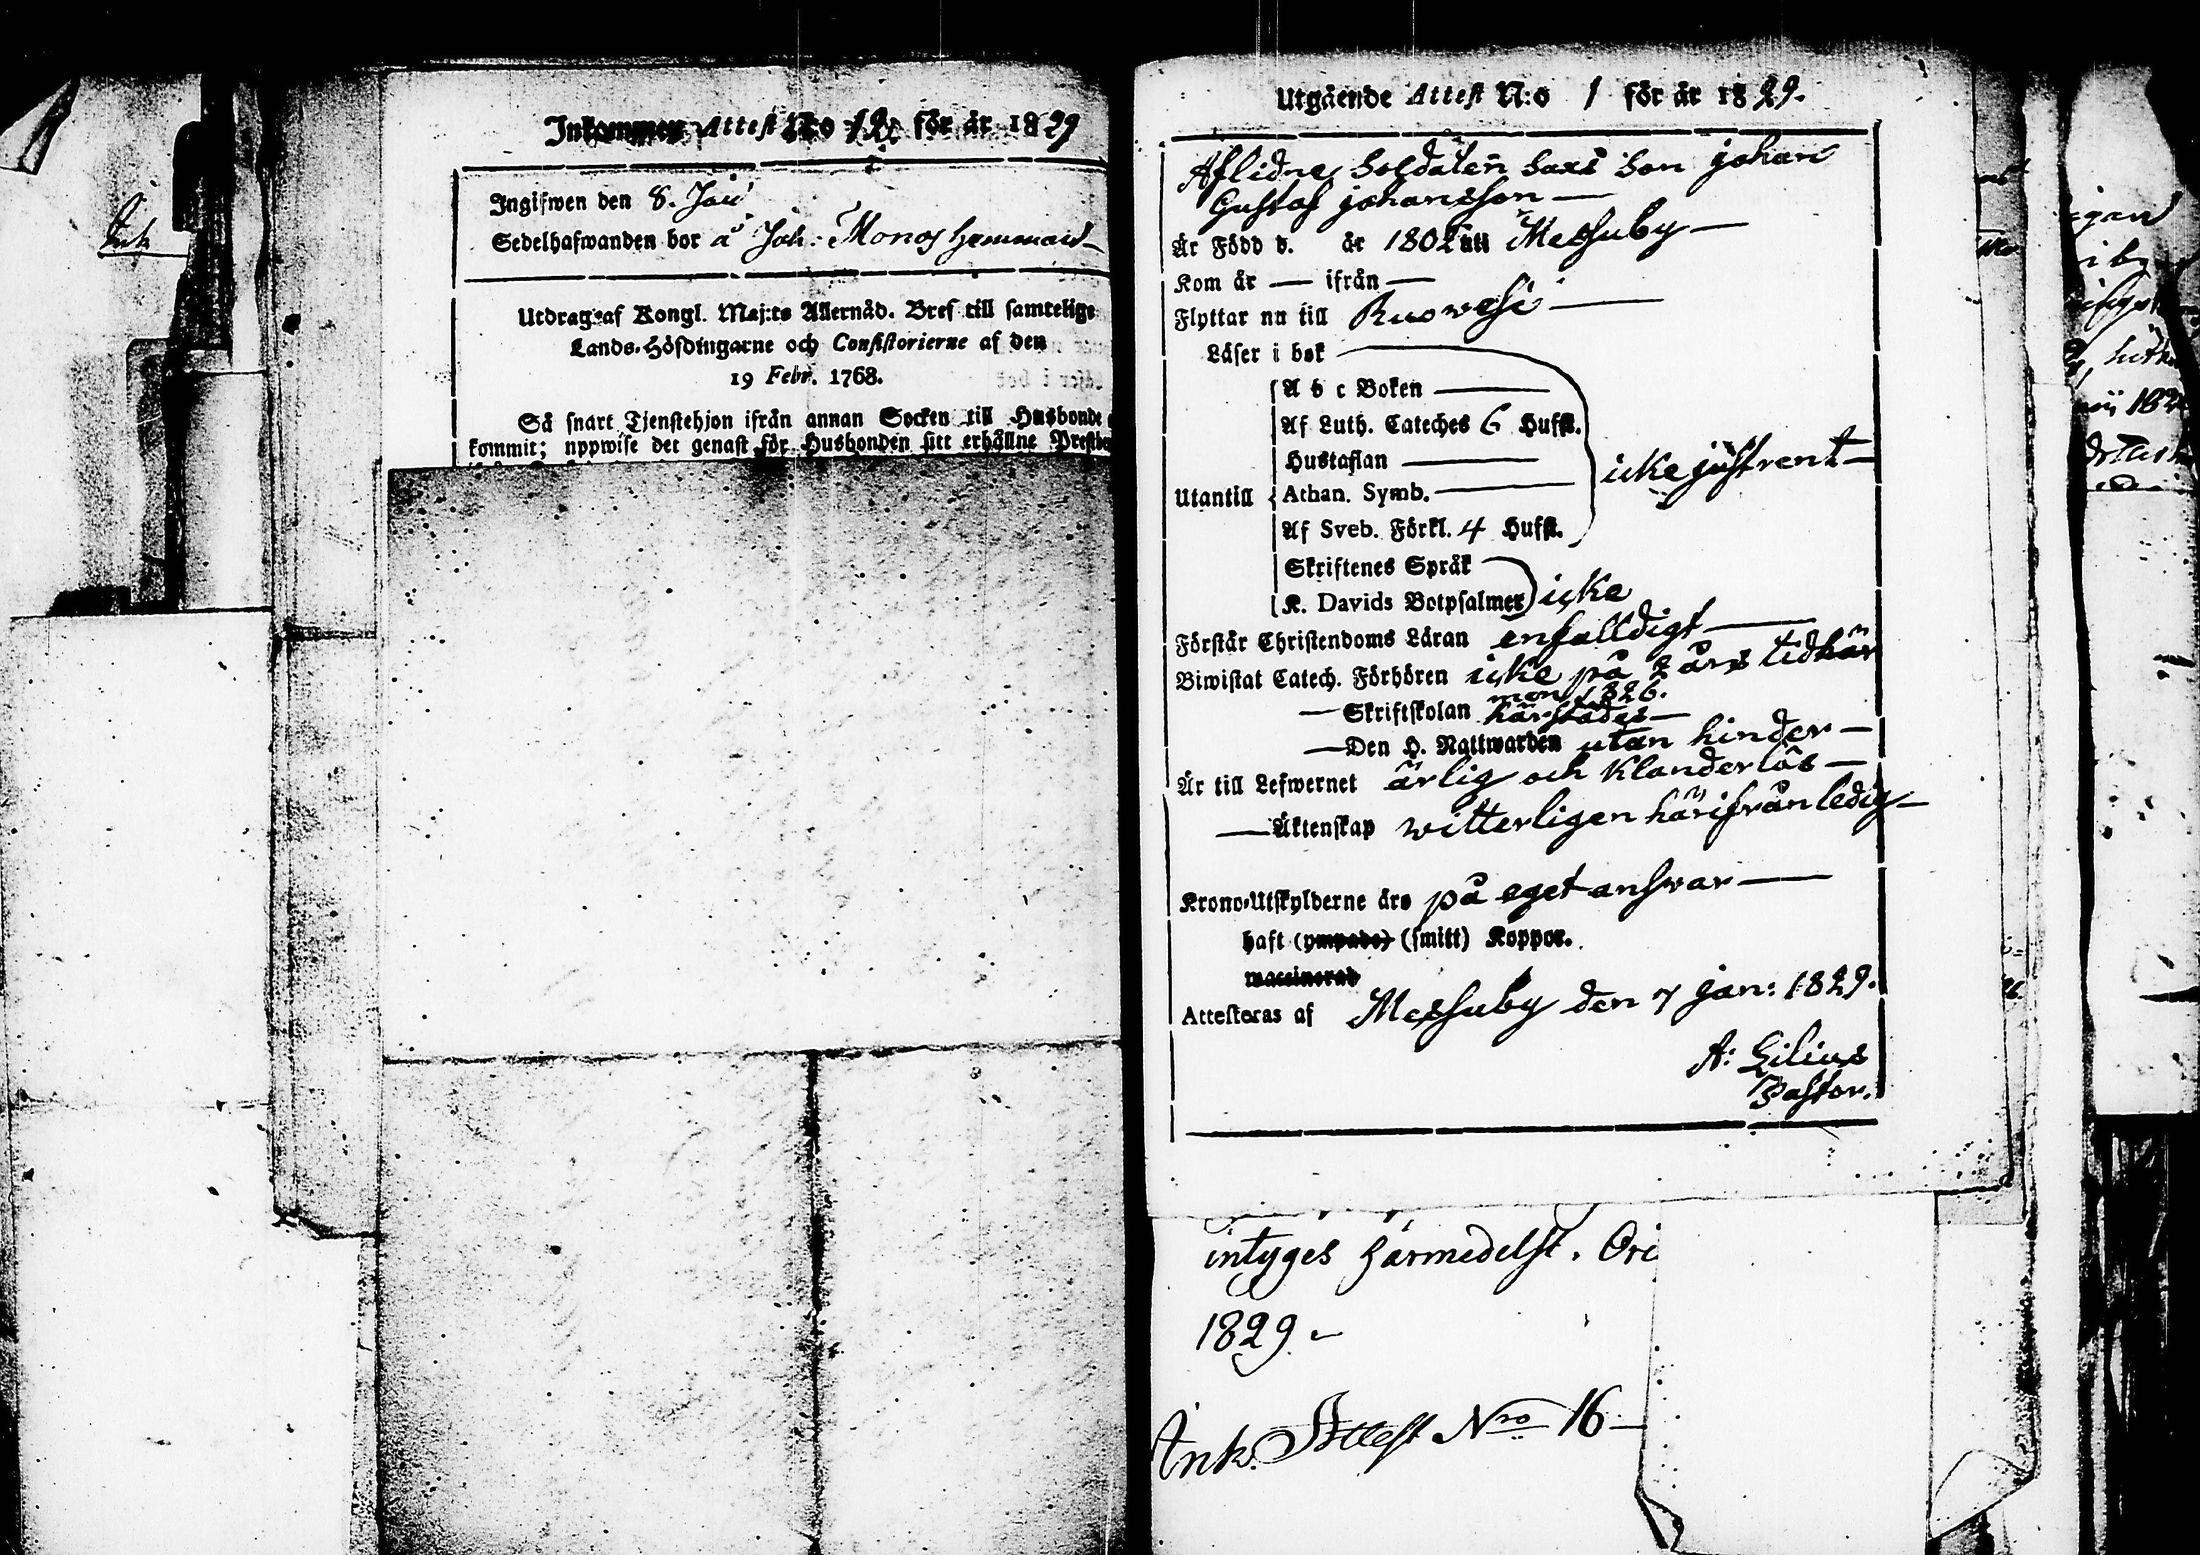 Inkommen Attest N:o 12 för år 1829
Ingifwen den 8. Jan
Sedelhafwanden bor å Joh. Monos Hemman
Utdrag af Kongl. Maj:ts Allernåd. Bref till samtelige
Lands-Höfdingarne och Consistorierne af den
19 Febr. 1768.
Så snart Tjenstehjon ifrån annan Socken till Husbonde
kommit; uppwise det genast för Husbonden sitt erhållne
Ink
Utgående Attest N:o 1 för år 1829.
Aflidne Soldaten Saxs Son johan
Gustaf johansson —
Är Född d. år 1802 uti Messuby —
Kom år — ifrån —
Flyttar nu till Ruovesi —
Läser i bok
A b c Boken —
Af Luth. Cateches 6 Hufst.
Hustaflan —
icke just rent —
Utantill Athan. Symb. —
Af Sveb. Förkl. 4 Hufst.
Skriftenes Språk
K. Davids Botpsalmer icke
Förstår Christendoms Läran enfalldigt —
Biwistat Catech. Förhören icke på 2 års tid här
men 1826.
— Skriftskolan härstädes —
— Den H. Nattwarden utan hinder —
Är till Lefwernet ärlig och klanderlös —
— Äktenskap witterligen härifrån ledig —
Krono-Utskylderne äro på eget answar —
haft (ympade) (smitt) Koppor.
waccinerad
Attesteras af Messuby den 7 jan: 1829.
A: Gilius
Pastor.
intyges härmedelst. Ori
1829.
Ink. Attest Nro 16 —